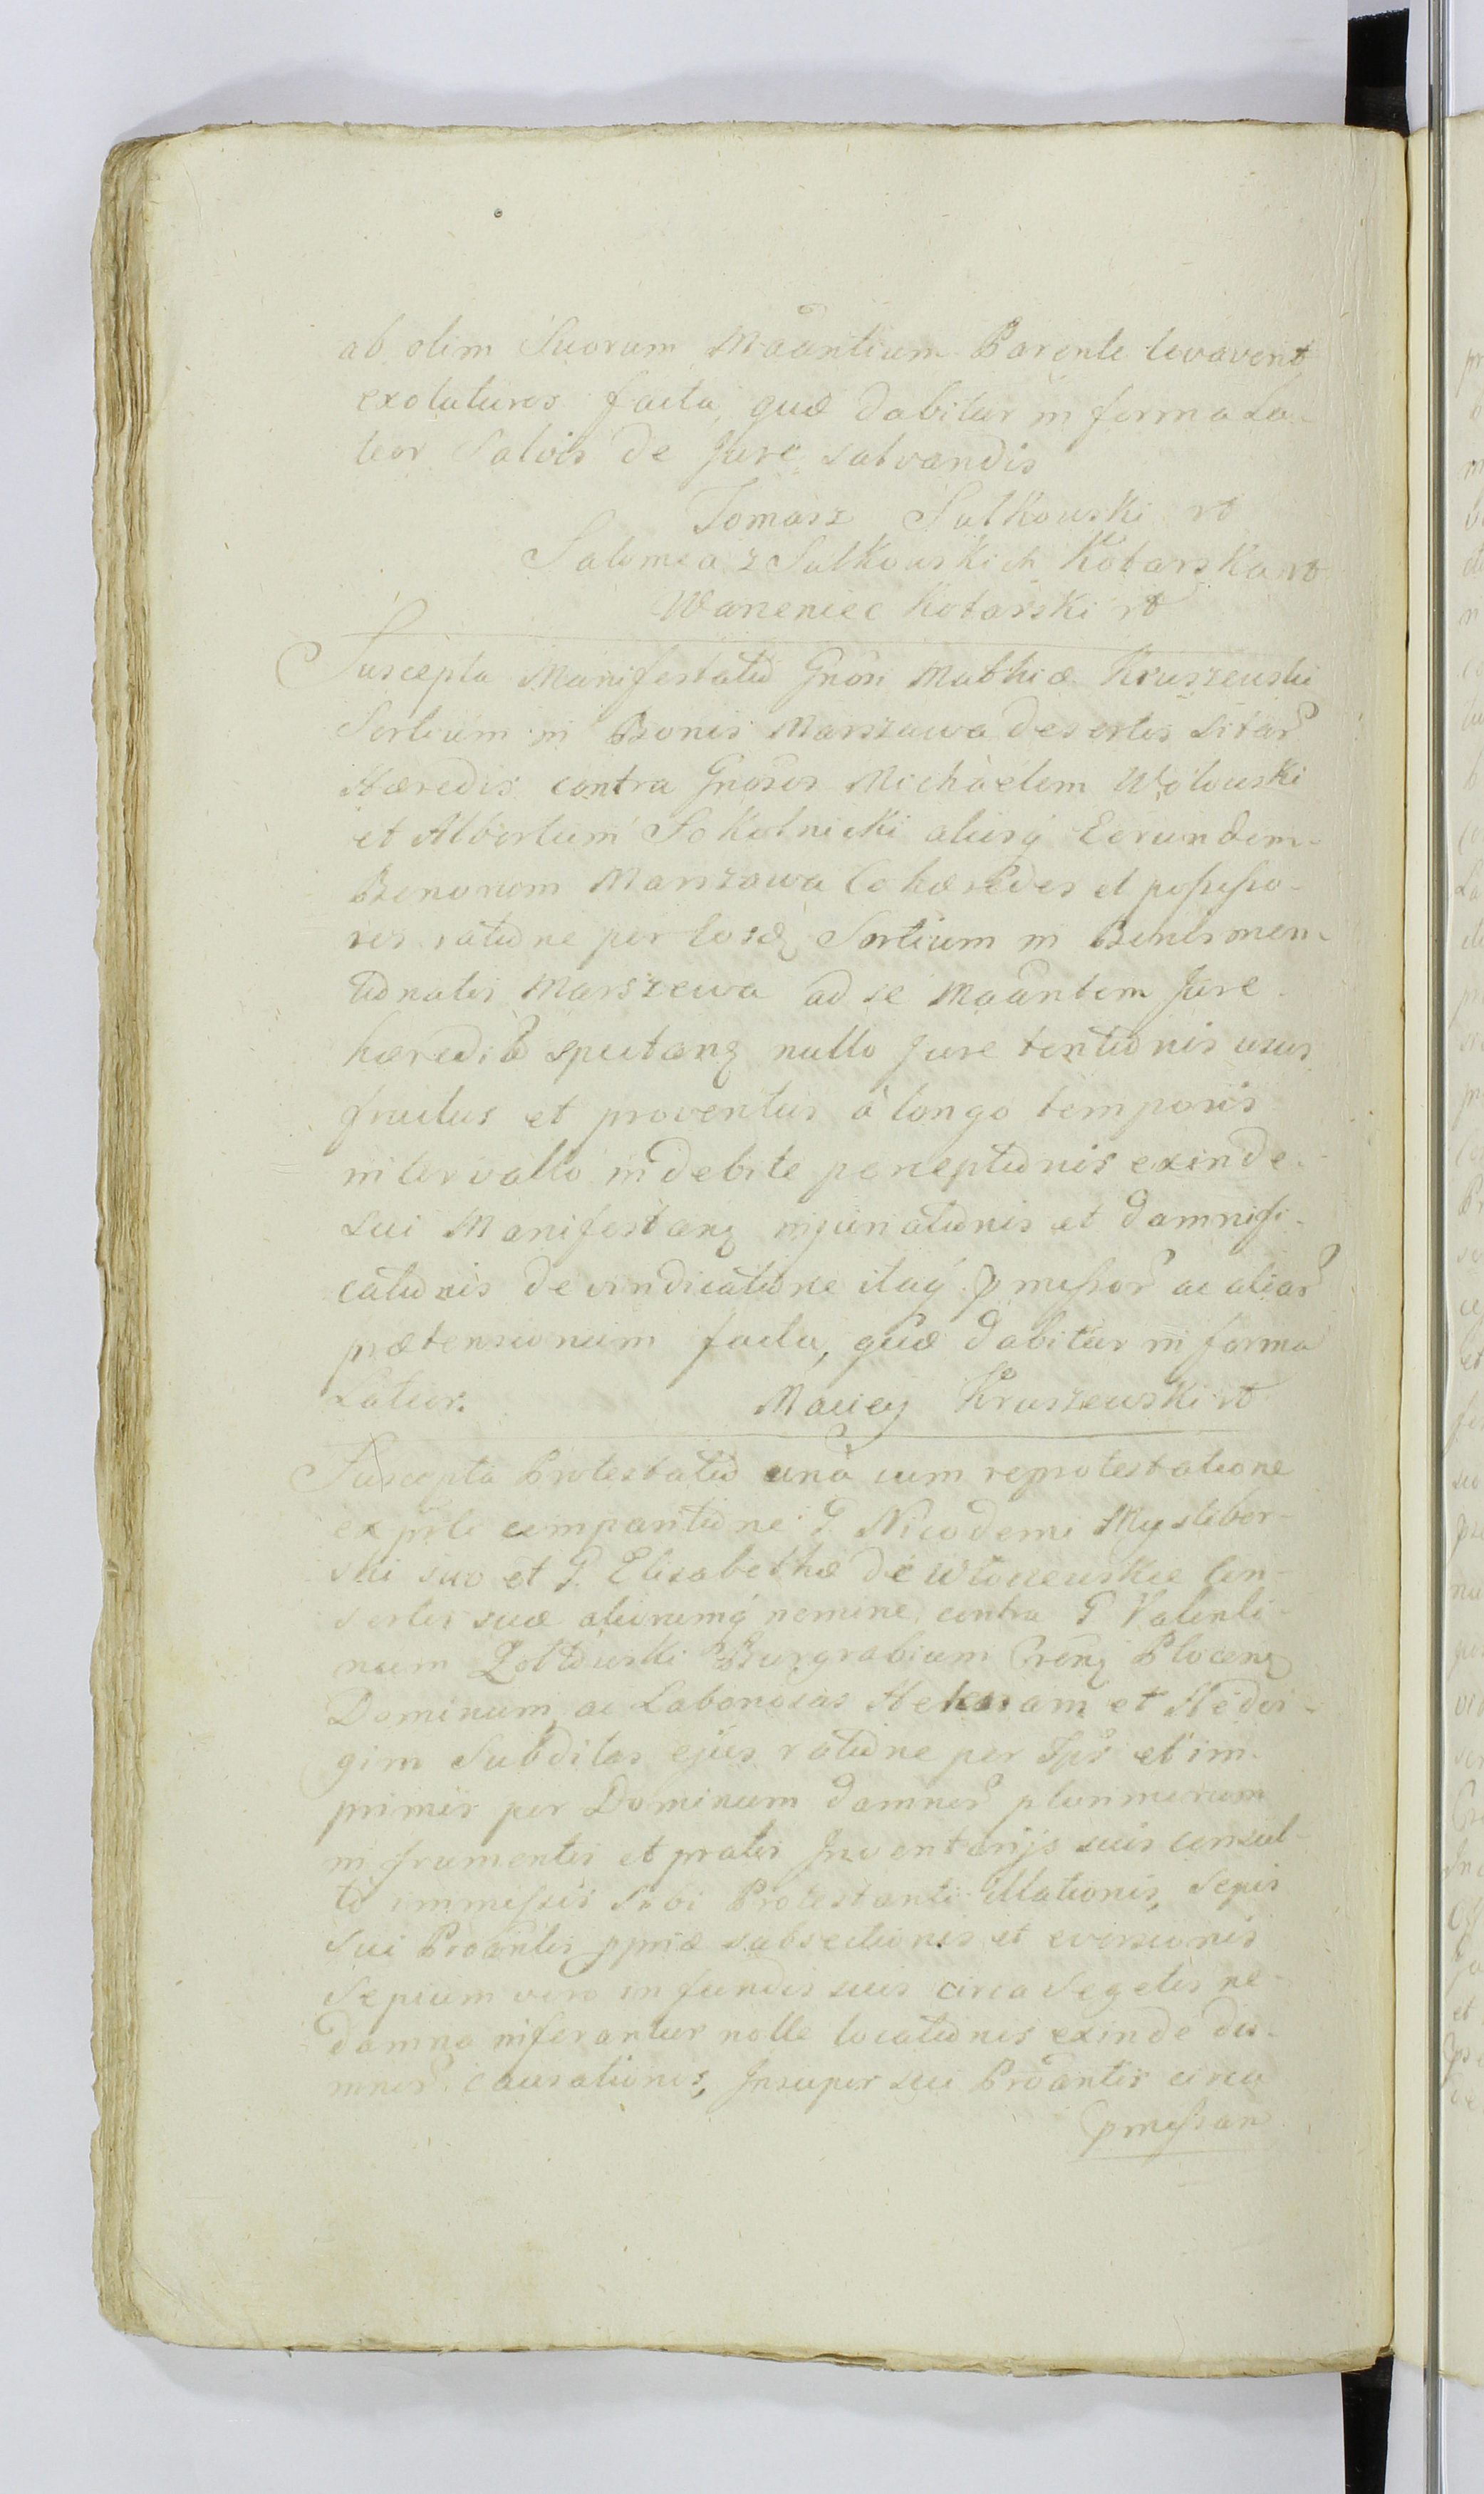 ab olim Suorum Mãantium Parente levaverit
exoluturos facta, quæ dabitur in forma La-
tior Salvis de Jure salvandis
Tomasz Sutkowski
Salomea z Sutkowskich Kotarska
Kotarski
Suscepta Manifestatio Gnosi Mathiæ Kruszewski
Sortium in Bonis Marszewa desertis Sitar
Hæredis contra Gnosos Michaelem Wołowski
et Albertum Sokolnicki aliosq Eorundem
Bonorum Marszewa Cohæredes et possesso-
res ratione per Eosdq Sortium in Bonis men-
tionatis Marszewa ad se Mãantem Jure
hæredit spectanq nullo Jure tentionis usus
fructus et proventus à longo temporis
intervallo indebite perceptionis exinde
sui Manifestanq injuriationis et damnifi-
cationis de vindicatione itaq pmissor ac aliar
prætensionum facta, quæ dabitur in forma
Latior. Maciey Kruszewski
Suscepta Protestatio unà cum reprotestatione
ex comparitione G. Nicodemi Mysliber-
ski suo et G. Elisabethæ de Con-
sortis suæ aliorumq nomine, contra G Valenti-
num Zołtowski Burgrabium Crenq Plocenq
Dominum, ac Laboriosas Helenam et Hedvi-
gim Subditas ejus ratione per Ips et im-
primis per Dominum damnor plurimorum
in frumentis et pratis Inventarijs suis consul-
to immissis Sibi Protestanti illationis, Sepis
sui Proantis ppriæ subsectionis et eversionis
Sepium vero in fundis suis circa Segetes ne
damna inferantur nolle locationis exinde da-
mnor causationis, Insuper sui Proantis circa
pmissan